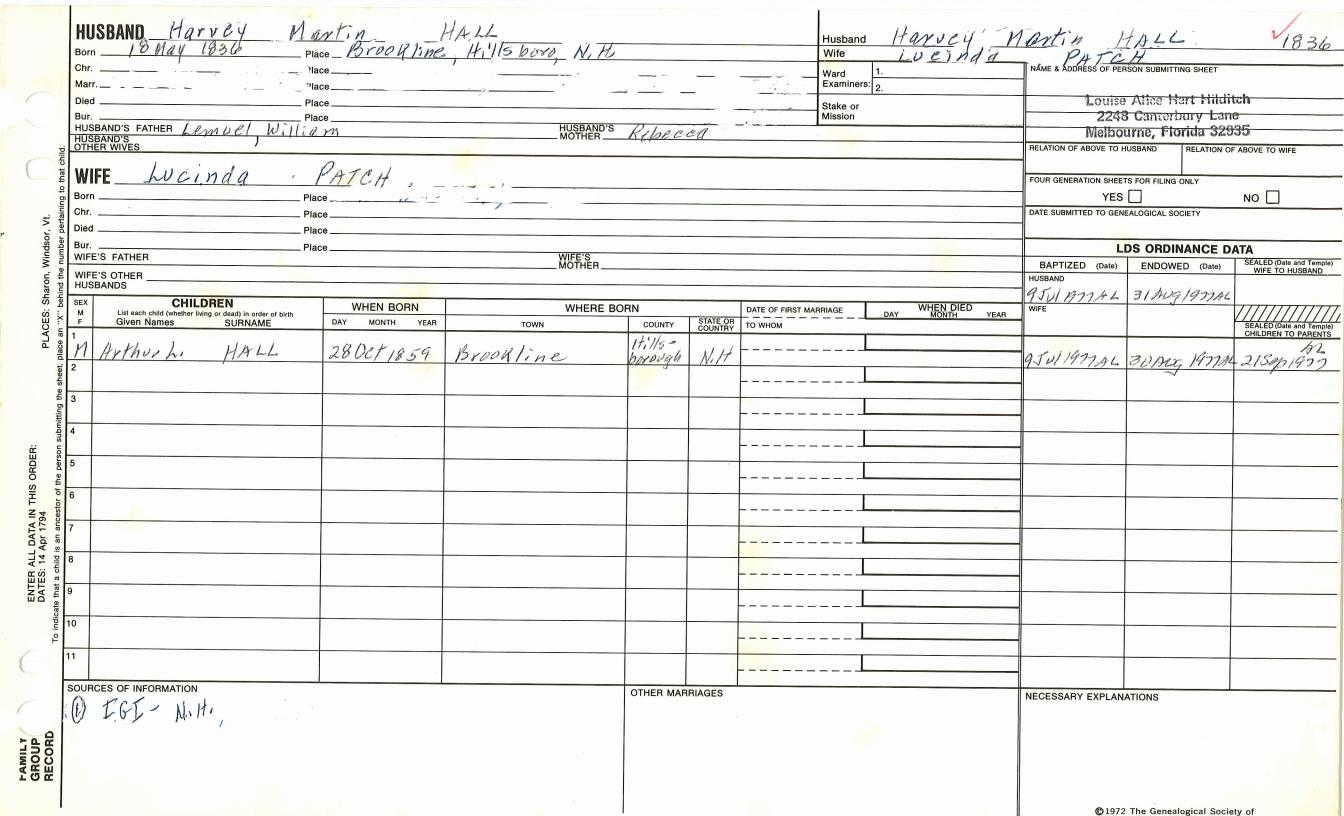 HUSBAND Harvey Martin HALL
Born 18 May 1836 Place Brookline, Hillsboro, N.H.
Chr. Place
Marr. Place
Died Place
Bur. Place
HUSBAND'S FATHER Lemuel, William HUSBAND'S MOTHER Rebecca
HUSBAND'S OTHER WIVES
Husband Harvey Martin HALL 1836
Wife Lucinda PATCH
Ward Examiners: 1.
2.
Stake or Mission
NAME & ADDRESS OF PERSON SUBMITTING SHEET
Louise Alice Hart Hilditch
2248 Canterbury Lane
Melbourne, Florida 32935
RELATION OF ABOVE TO HUSBAND RELATION OF ABOVE TO WIFE
FOUR GENERATION SHEETS FOR FILING ONLY
YES NO
DATE SUBMITTED TO GENEALOGICAL SOCIETY
WIFE Lucinda PATCH
Born Place
Chr. Place
Died Place
Bur. Place
WIFE'S FATHER WIFE'S MOTHER
WIFE'S OTHER HUSBANDS
LDS ORDINANCE DATA
BAPTIZED (Date) ENDOWED (Date) SEALED (Date and Temple) WIFE TO HUSBAND
HUSBAND
9 Jul 1977 AL 31 Aug 1977 AL
WIFE
SEALED (Date and Temple) CHILDREN TO PARENTS
SEX M F
CHILDREN
List each child (whether living or dead) in order of birth
Given Names SURNAME
WHEN BORN
DAY MONTH YEAR
WHERE BORN
TOWN COUNTY STATE OR COUNTRY
DATE OF FIRST MARRIAGE
TO WHOM
WHEN DIED
DAY MONTH YEAR
1
M Arthur L. HALL 28 Oct 1859 Brookline Hills-borough N.H 9 Jul 1977 AL 30 Aug 1977 AL 21 Sep 1977 AL
2
3
4
5
6
7
8
9
10
11
SOURCES OF INFORMATION
① IGI - N.H.
OTHER MARRIAGES
NECESSARY EXPLANATIONS
©1972 The Genealogical Society of
ENTER ALL DATA IN THIS ORDER:
DATES: 14 Apr 1794 PLACES: Sharon, Windsor, Vt.
To indicate that a child is an ancestor of the person submitting the sheet, place an "X" behind the number pertaining to that child.
FAMILY GROUP RECORD